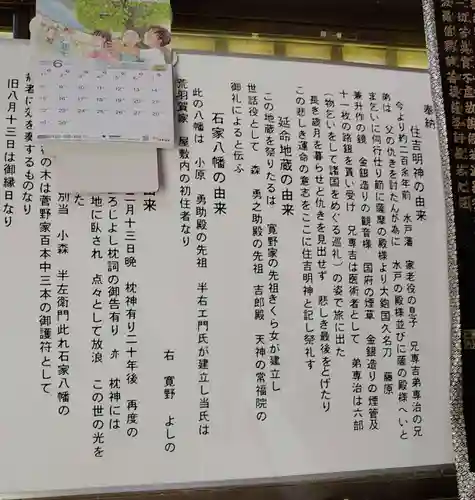 奉納
住吉明神の由来
今より約二百余年前 水戸藩 家老役の息子 兄専吉弟専治の兄
弟は 父の仇きを討たんが為に 水戸の殿様並びに薩の殿様へいと
ま乞いに伺行仕り節に薩摩の殿様より大鉋国久名刀 藤原
兼升作の鏡 金銀造りの観音様 国府の煙草 金銀造りの煙管及
十一枚の路銀を貰い受け 兄専吉は医術者として 弟専治は六部
(物乞いをして諸国をめぐる巡礼)の姿で旅に出た
長き歳月を暮らせど仇きを見出せず 悲しき最後をとげたり
この悲しき運命の意志をここに住吉明神と記し祭礼す
延命地蔵の由来
この地蔵を祭りたるは 寛野家の先祖きくら女が建立し
世話役として 森 勇之助殿の先祖 吉郎殿 天神の常福院の
御礼によると伝ふ
石家八幡の由来
此の八幡は 小原 勇助殿の先祖 半右エ門氏が建立し当氏は
荒羽賀家 屋敷内の初住者なり
右 寛野 よしの
由来
二月十三日晩 枕神有り二十年後 再度の
ろじよし枕詞の御告有り 亦 枕神には
地に臥され 点々として放浪 この世の光を
た
別当 小森 半左衛門此れ石家八幡の
の木は菅野家百本中三本の御護符として
病者に効を奏するものなり
旧八月十三日は御縁日なり
6